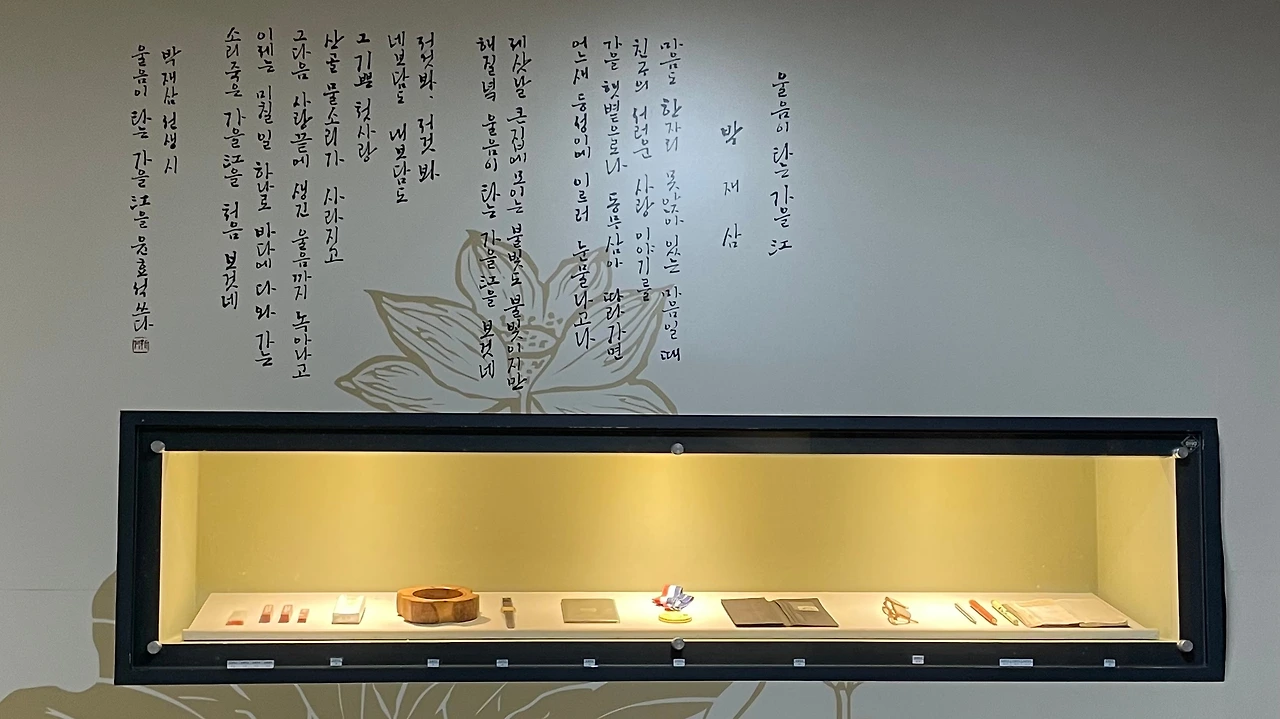 울음이 타는 가을 江
박재삼
마음도 한자리 못 앉아 있는 마음일 때
친구의 서러운 사랑 이야기를
가을 햇볕으로나 동무삼아 따라가면
어느새 등성이에 이르러 눈물나고나
제삿날 큰집에 모이는 불빛도 불빛이지만
해질녘 울음이 타는 가을 江을 보겠네
저것 봐, 저것 봐
네보담도 내보담도
그 기쁜 첫사랑
산골 물소리가 사라지고
그 다음 사랑 끝에 생긴 울음까지 녹아나고
이제는 미칠 일 하나로 바다에 다 와 가는
소리 죽은 가을 江을 처음 보겠네
박재삼 선생 시
울음이 타는 가을 江을 윤효석 쓰다